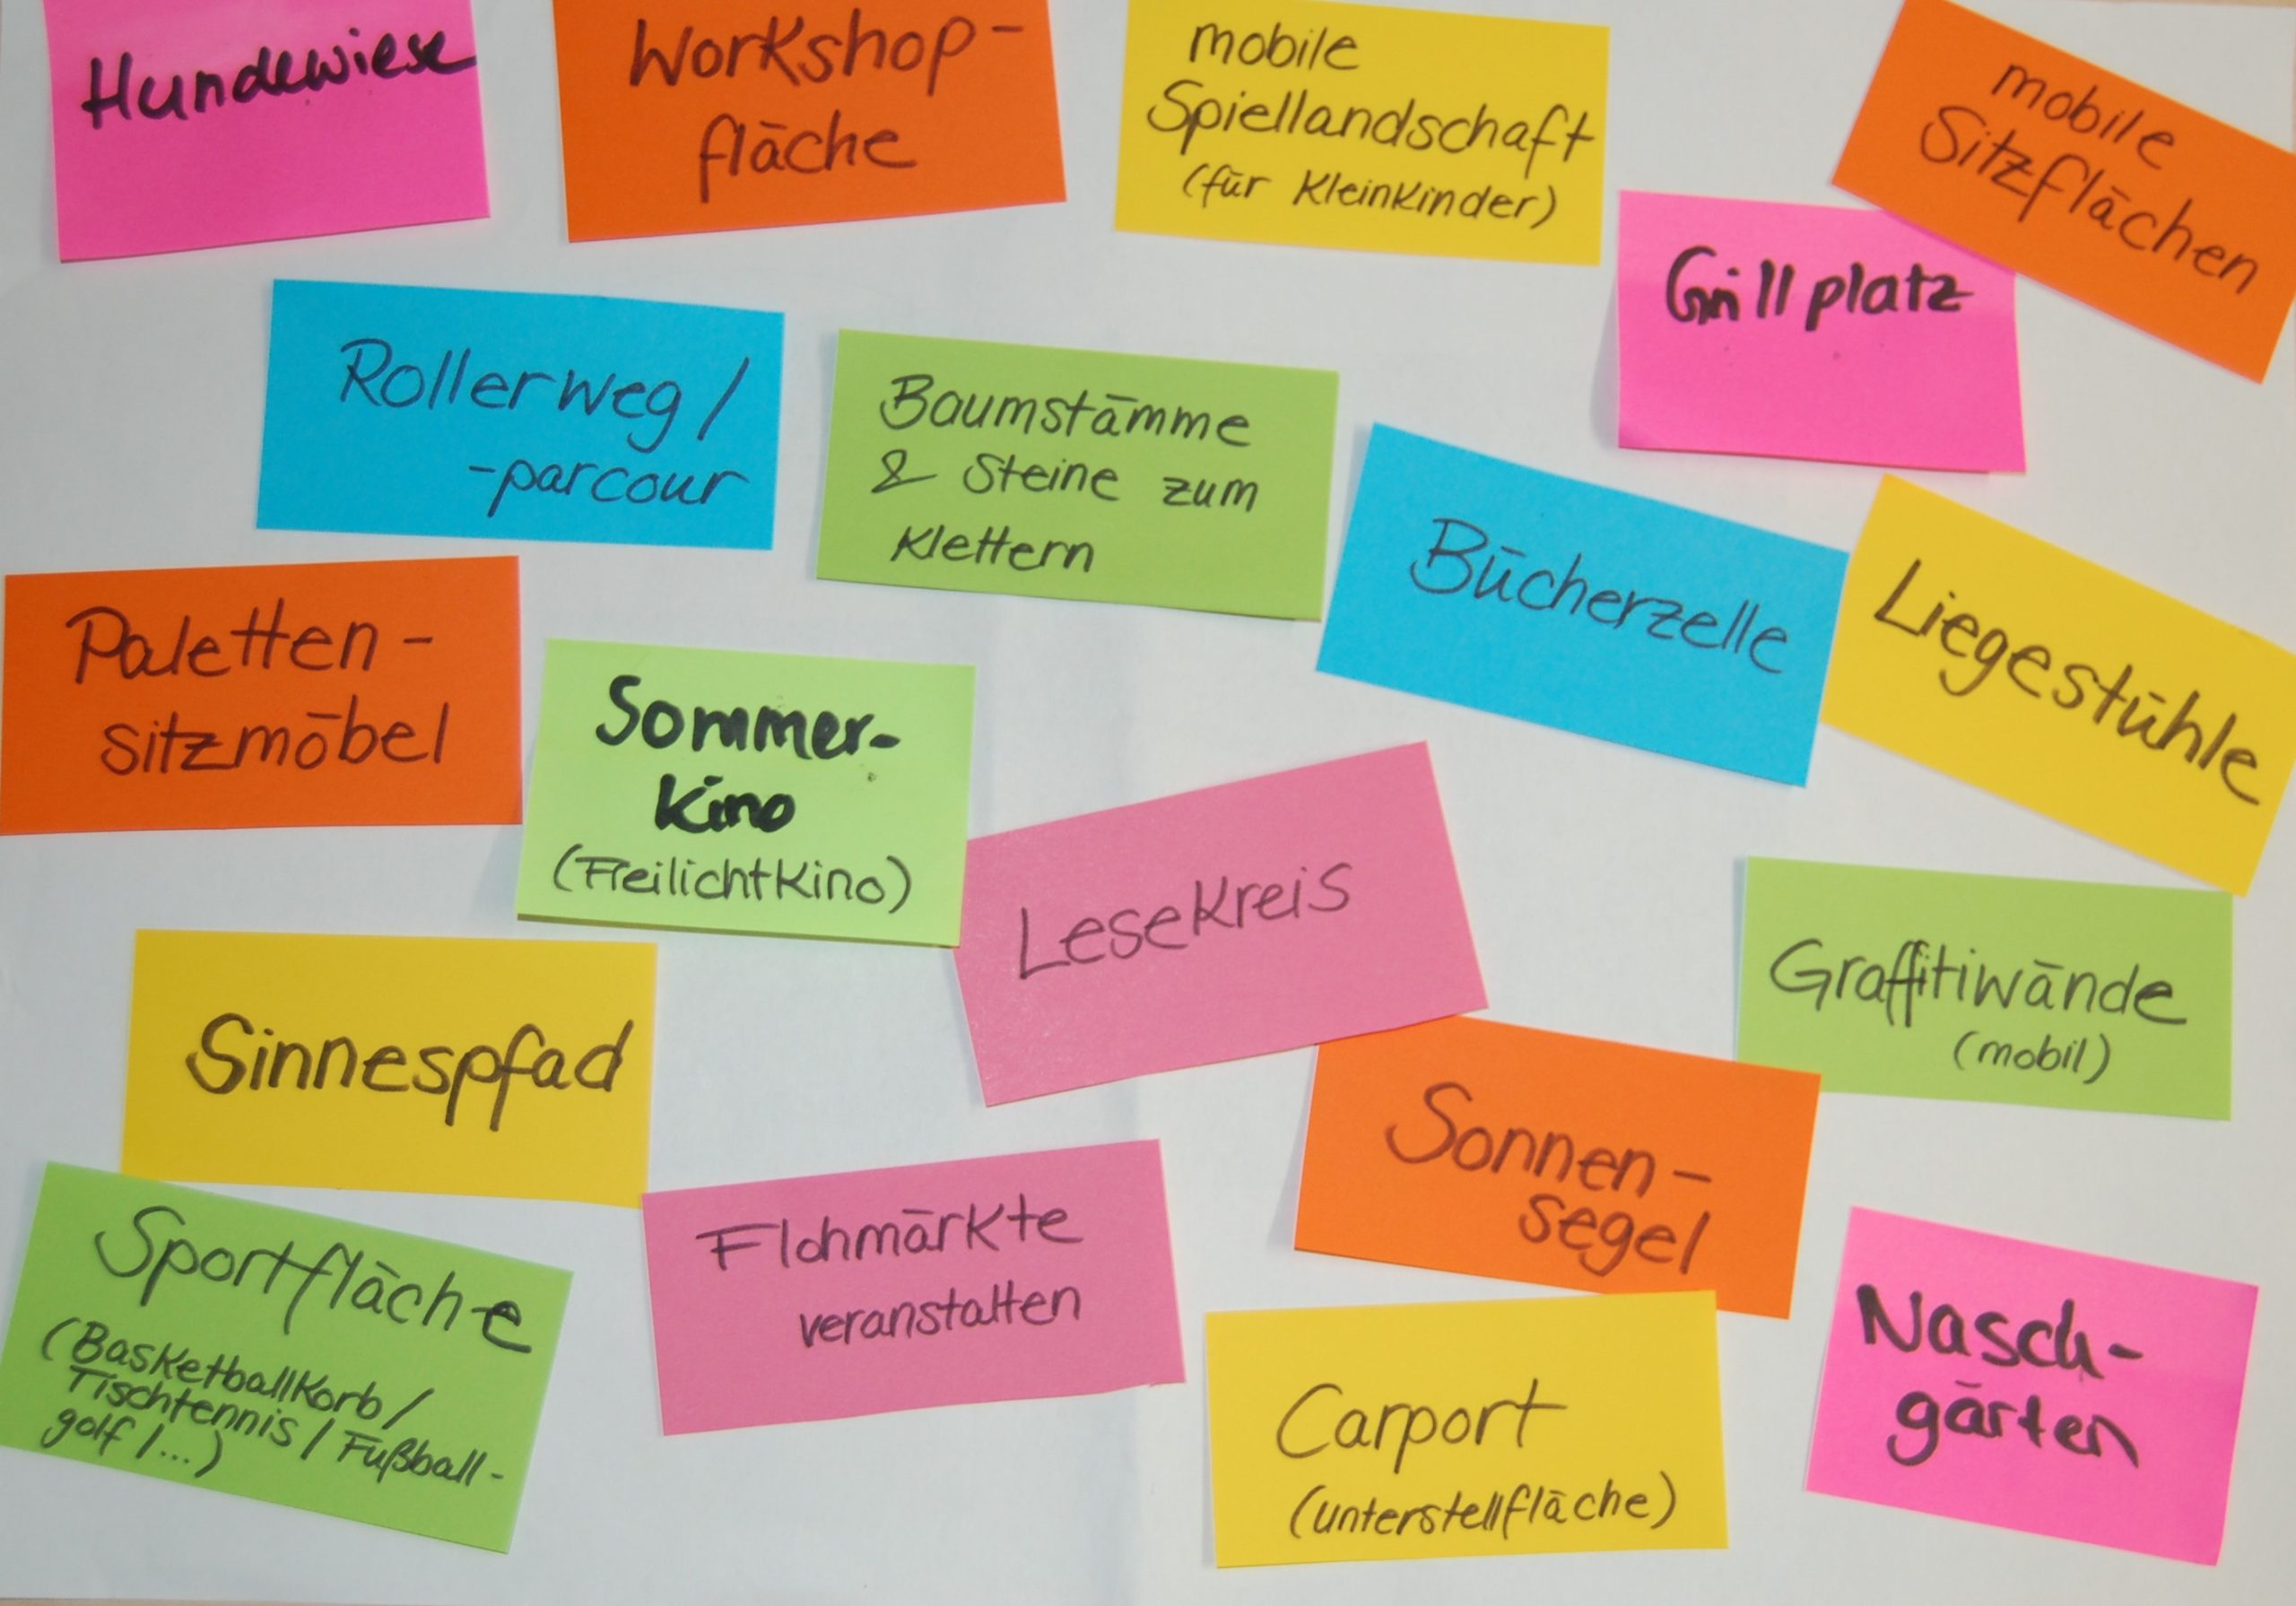 Hundewiese
Workshop-
fläche
mobile
Spiellandschaft
(für Kleinkinder)
mobile
Sitzflächen
Grillplatz
Rollerweg/
-parcour
Baumstämme
& Steine zum
Klettern
Bücherzelle
Liegestühle
Paletten-
sitzmöbel
Sommer-
Kino
(Freilichtkino)
Lesekreis
Graffitiwände
(mobil)
Sinnespfad
Sonnen-
segel
Sportfläche
(Basketballkorb/
Tischtennis/Fußball-
golf/...)
Flohmärkte
veranstalten
Carport
(unterstellfläche)
Nasch-
gärten